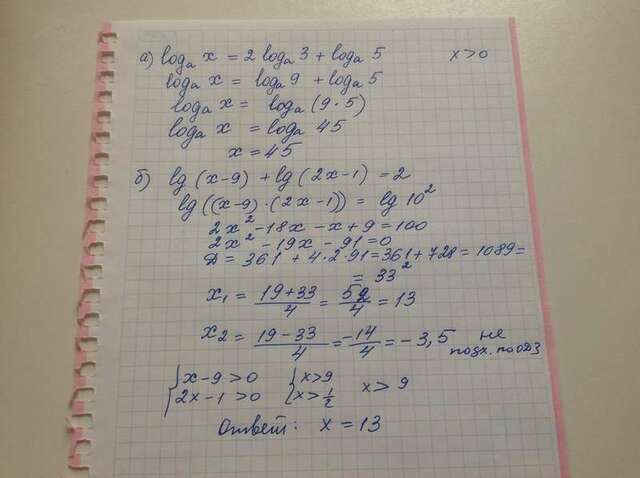 а) log_a x = 2 log_a 3 + log_a 5 x>0
log_a x = log_a 9 + log_a 5
log_a x = log_a (9·5)
log_a x = log_a 45
x = 45
б) lg (x-9) + lg (2x-1) = 2
lg ((x-9)·(2x-1)) = lg 10²
2x² - 18x - x + 9 = 100
2x² - 19x - 91 = 0
D = 361 + 4·2·91 = 361 + 728 = 1089 =
= 33²
x₁ = (19+33)/4 = 52/4 = 13
x₂ = (19-33)/4 = -14/4 = -3,5 не подх. по ОДЗ
{x-9>0 {x>9 x>9
{2x-1>0 {x>1/2
Ответ: x = 13